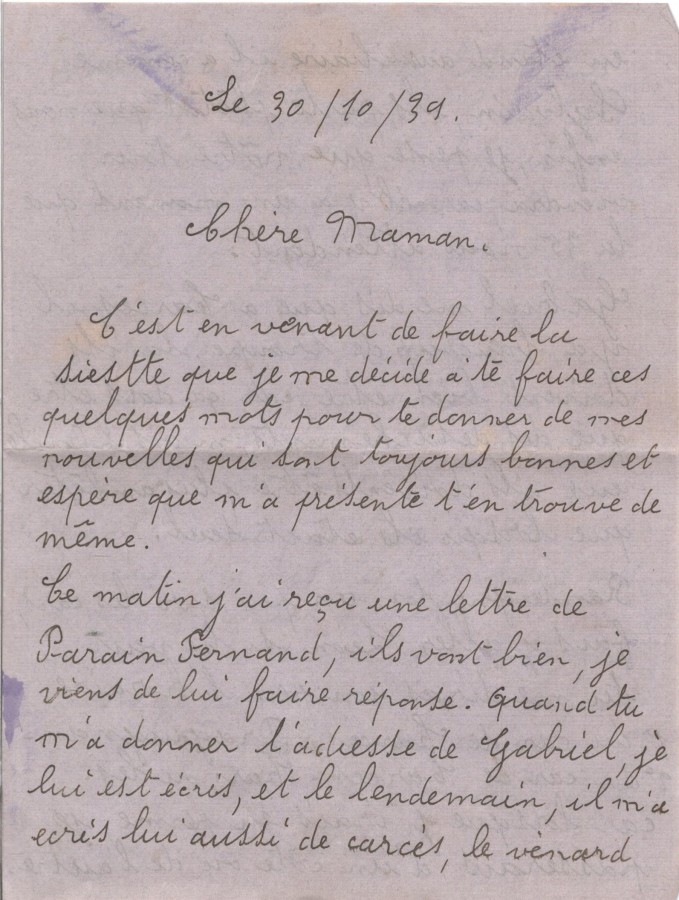 Le 30/10/39.
Chère Maman.
C'est en venant de faire la
siestte que je me décide à te faire ces
quelques mots pour te donner de mes
nouvelles qui sont toujours bonnes et
espère que m'a présente t'en trouve de
même.
Ce matin j'ai reçu une lettre de
Parain Fernand, ils vont bien, je
viens de lui faire réponse. Quand tu
m'a donner l'adresse de Gabriel, je
lui est écris, et le lendemain, il m'a
ecris lui aussi de carcès, le vénard